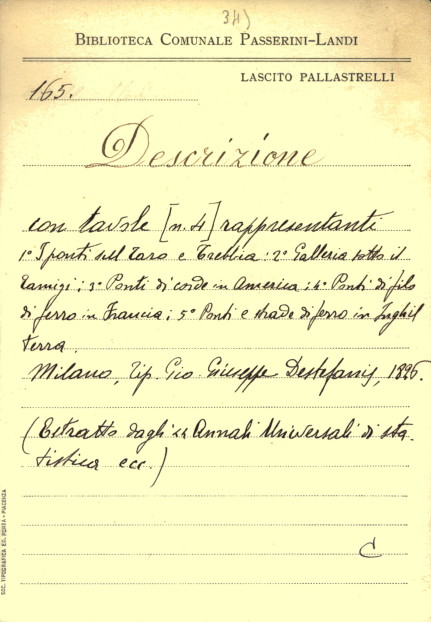 34)
BIBLIOTECA COMUNALE PASSERINI-LANDI
LASCITO PALLASTRELLI
165.
Descrizione
con tavole [n. 4] rappresentanti
1° I ponti sul Taro e Trebbia: 2° Galleria sotto il
Tamigi; 3° Ponti di corde in America; 4° Ponti di filo
di ferro in Francia; 5° Ponti e strade di ferro in Inghil
terra.
Milano, Tip. Gio. Giuseppe Destefanis, 1826.
(Estratto dagli << Annali Universali di sta
tistica ecc.)
C
SOC. TIPOGRAFICA ED. PORTA - PIACENZA